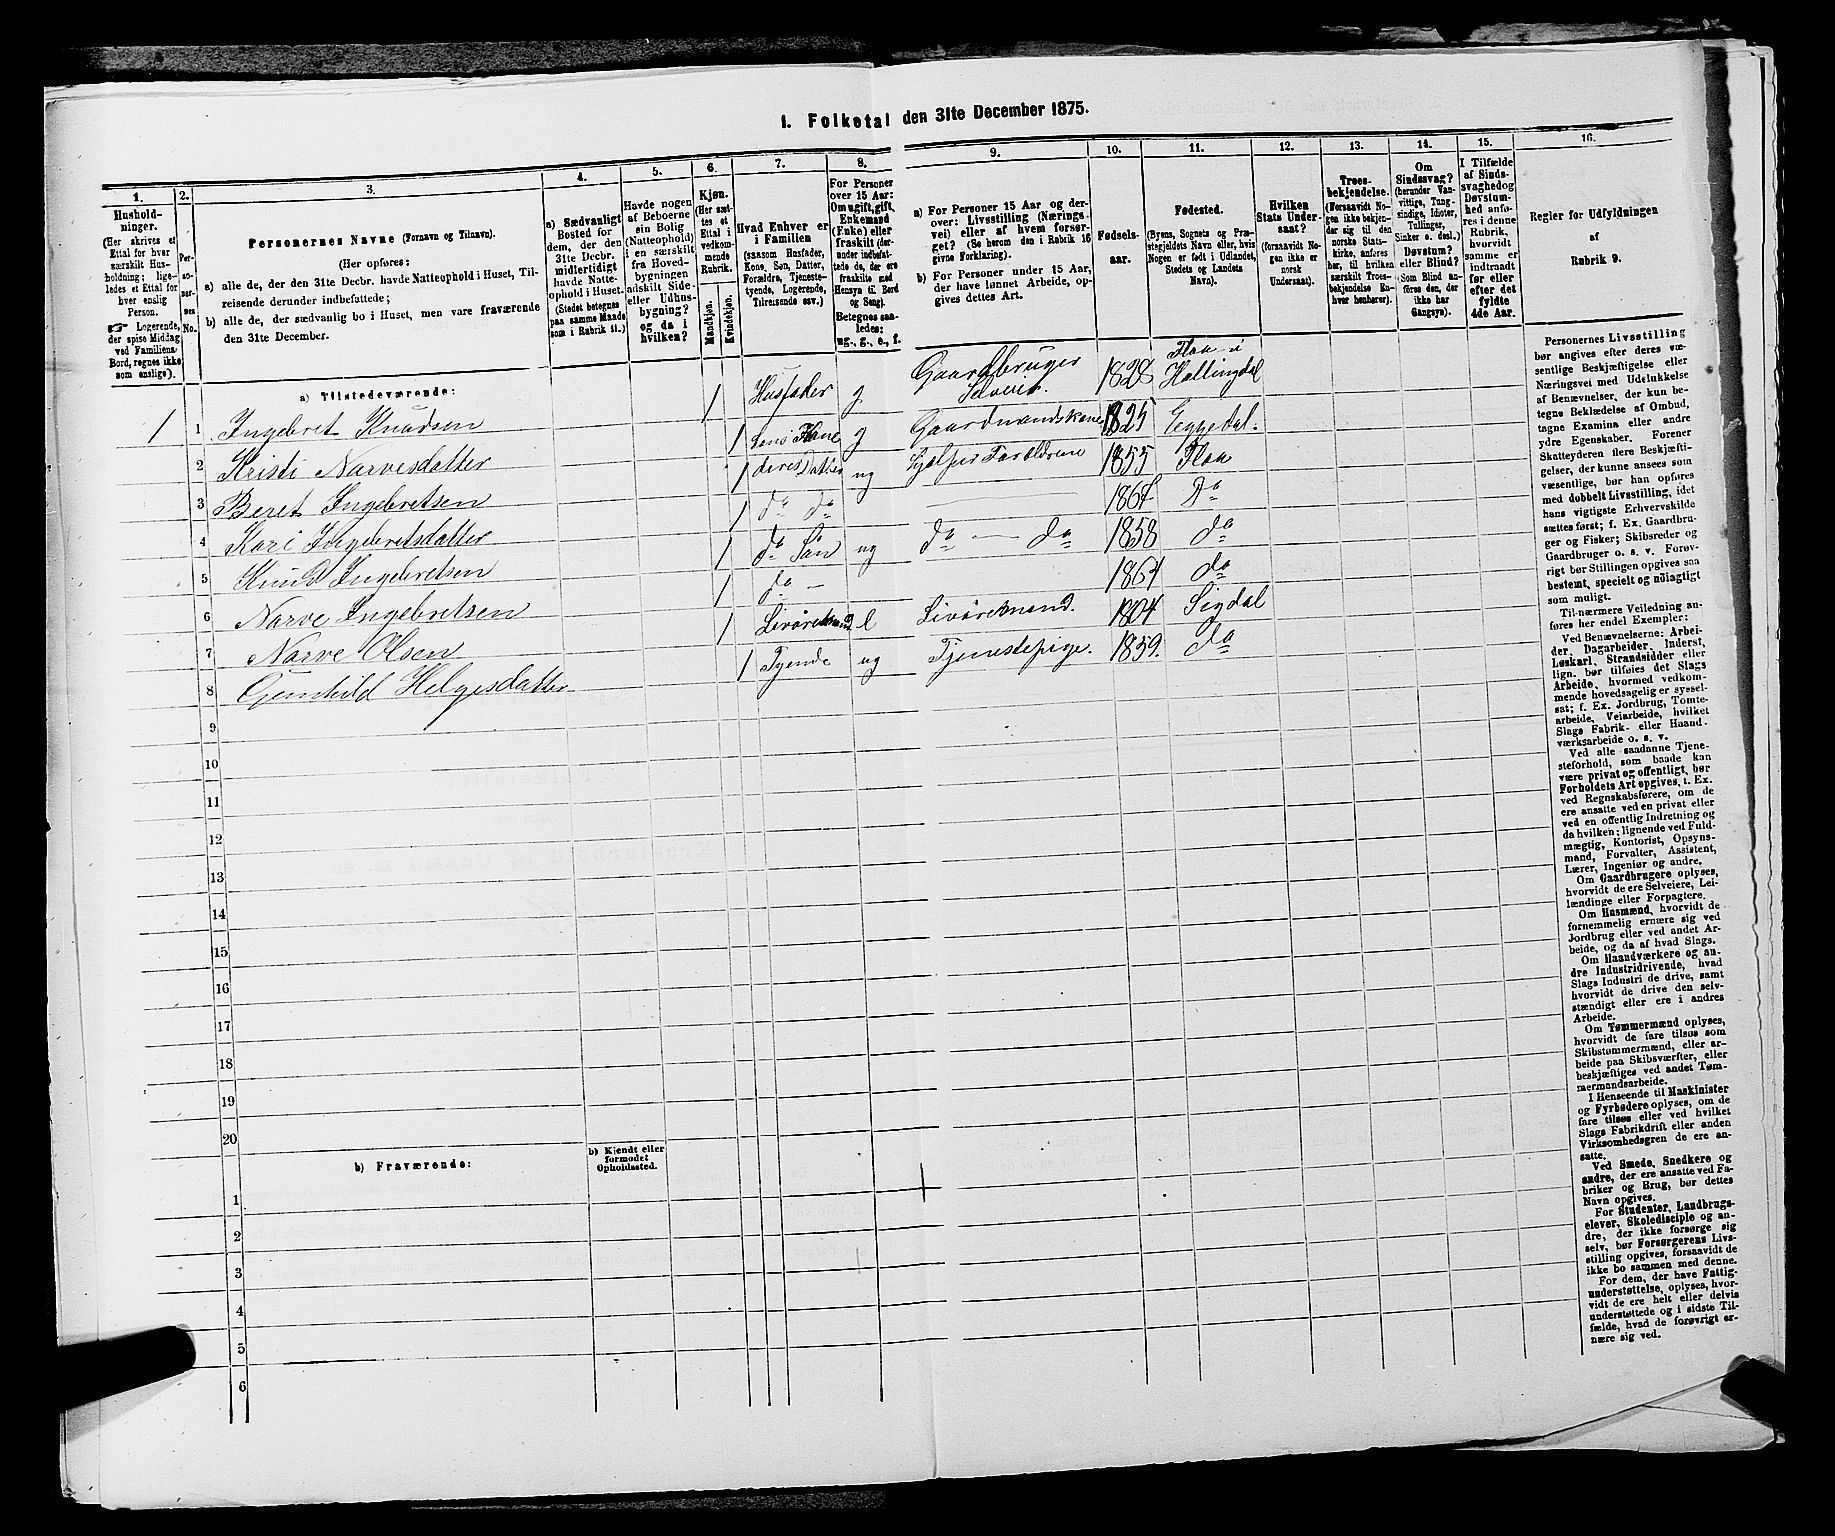 1. Folketal den 31te December 1875.
1. 2. 3. 4. 5. 6. 7. 8. 9. 10. 11. 12. 13. 14. 15. 16.
Hushold-
ninger.
(Her skrives et
Ettal for hver
særskilt Hus-
holdning; lige-
ledes et Ettal for
hver enslig
Person.
☞ Logerende,
der spise Middag
ved Familiens
Bord, regnes ikke
som enslige).
Per-
so-
ner-
nes
No.
Personernes Navne (Fornavn og Tilnavn).
(Her opføres:
a) alle de, der den 31te Decbr. havde Natteophold i Huset, Til-
reisende derunder indbefattede;
b) alle de, der sædvanlig bo i Huset, men vare fraværende
den 31te December.
a) Sædvanligt
Bosted for
dem, der den
31te Decbr.
midlertidigt
havde Natte-
ophold i Huset.
(Stedet betegnes
paa samme Maade
som i Rubrik 11.)
Havde nogen
af Beboerne
sin Bolig
(Natteophold)
i en særskilt
fra Hoved-
bygningen
adskilt Side-
eller Udhus-
bygning?
og da i
hvilken?
Kjøn.
(Her sæt-
tes et
Ettal i
vedkom-
mende
Rubrik.
Mandkjøn.
Kvindekjøn.
Hvad Enhver er
i Familien
(saasom Husfader,
Kone, Søn, Datter,
Forældre, Tjeneste-
tyende, Logerende,
Tilreisende osv.)
For Personer
over 15 Aar:
Om ugift, gift,
Enkemand
(Enke) eller
fraskilt (der-
under indbefat-
tede de, der ere
fraskilte med
Hensyn til Bord
og Seng).
Betegnes saa-
ledes:
ug., g., e., f.
a) For Personer 15 Aar og der-
over: Livsstilling (Nærings-
vei) eller af hvem forsør-
get? (Se herom den i Rubrik 16
givne Forklaring).
b) For Personer under 15 Aar,
der have lønnet Arbeide, op-
gives dettes Art.
Fødsels-
aar.
Fødested.
(Byens, Sognets og Præ-
stegjeldets Navn eller, hvis
Nogen er født i Udlandet,
Stedets og Landets
Navn).
Hvilken
Stats Under-
saat?
(forsaavidt No-
gen ikke er
norsk
Undersaat).
Troes-
bekjendelse.
(Forsaavidt No-
gen ikke bekjen-
der sig til den
norske Stats-
kirke, anføres
her, til hvilken
særskilt Troes-
bekjendelse En-
hver henhører).
Om
Sindssvag?
(herunder Van-
vittige, Tung-
sindige, Idioter,
Tullinger,
Sinker o. desl.)
Døvstum?
eller Blind?
(Som Blind an-
føres den, der
ikke har
Gangsyn).
I Tilfælde
af Sinds-
svaghed og
Døvstum-
hed anfø-
res i denne
Rubrik,
hvorvidt
samme er
indtraadt
før eller
efter det
fyldte
4de Aar.
Regler for Udfyldningen
af
Rubrik 9.
a) Tilstedeværende:
1 1 Ingebret Knudsen 1 Husfader g Gaardbruger Selveier. 1828 Flaa i Hallingdal
2 Kristi Narvesdatter 1 hans Kone g Gaardmandskone 1825 Eggedal.
3 Beret Ingebretsen 1 deres Datter ug hjelper Forældrene 1855 Flaa
4 Kari Ingebretsdatter 1 do do 1867 Do
5 Knud Ingebretsen 1 do Søn ug do — do 1858 do
6 Narve Ingebretsen 1 do — 1864 do
7 Narve Olsen 1 Livøremand e Livøremand. 1804 Sigdal
8 Gunhild Helgesdatter 1 Tyende ug Tjenestepige. 1859. do
9
10
11
12
13
14
15
16
17
18
19
20
b) Fraværende:
b) Kjendt eller
formodet
Opholdssted.
1
2
3
4
5
6
Personernes Livsstilling
bør angives efter deres væ-
sentlige Beskjæftigelse eller
Næringsvei med Udelukkelse
af Benævnelser, der kun be-
tegne Beklædelse af Ombud,
tagne Examina eller andre
ydre Egenskaber. Forener
Skatteyderen flere Beskjæfti-
gelser, der kunne ansees som
væsentlige, bør han opføres
med dobbelt Livsstilling, idet
hans vigtigste Erhvervskilde
sættes først; f. Ex. Gaardbru-
ger og Fisker; Skibsreder og
Gaardbruger o. s. v. Forøv-
rigt bør Stillingen opgives saa
bestemt, specielt og nøiagtigt
som muligt.
Til nærmere Veiledning an-
føres her endel Exempler:
Ved Benævnelserne: Arbei-
der, Dagarbeider, Inderst,
Løskarl, Strandsidder eller
lign. bør tilføies det Slags
Arbeide, hvormed vedkom-
mende hovedsagelig er syssel-
sat; f. Ex. Jordbrug, Tomte-
arbeide, Veiarbeide, hvilket
Slags Fabrik- eller Haand-
værksarbeide o. s. v.
Ved alle saadanne Tjene-
steforhold, som baade kan
være privat og offentligt, bør
Forholdets Art opgives, t. Ex.
ved Regnskabsførere, om de
ere ansatte ved en privat eller
ved en offentlig Indretning og
da hvilken; lignende ved Fuld-
mægtig, Kontorist, Opsyns-
mand, Forvalter, Assistent,
Lærer, Ingeniør og andre.
Om Gaardbrugere oplyses,
hvorvidt de ere Selveiere, Lei-
lændinge eller Forpagtere.
Om Husmænd, hvorvidt de
fornemmelig ernære sig ved
Jordbrug eller ved andet Ar-
beide, og da af hvad Slags.
Om Haandværkere og an-
dre Industridrivende, hvad
Slags Industri de drive, samt
hvorvidt de drive den selv-
stændigt eller ere i andres
Arbeide.
Om Tømmermænd oplyses,
hvorvidt de fare tilsøs som
Skibstømmermænd, eller ar-
beide paa Skibsværfter, eller
beskjæftiges ved andet Tøm-
mermandsarbeide.
I Henseende til Maskinister
og Fyrbødere oplyses, om de
fare tilsøs eller ved hvilket
Slags Fabrikdrift eller anden
Virksomhedsgren de ere an-
satte.
Ved Smede, Snedkere og
andre, der ere ansatte ved Fa-
briker og Brug, bør dettes
Navn opgives.
For Studenter, Landbrugs-
elever, Skoledisciple og an-
dre, der ikke forsørge sig
selv, bør Forsørgerens Livs-
stilling opgives, forsaavidt de
ikke bo sammen med denne.
For dem, der have Fattig-
understøttelse, oplyses, hvor-
vidt de ere helt eller delvis
understøttede og i sidste Til-
fælde, hvad de forøvrigt er-
nære sig ved.